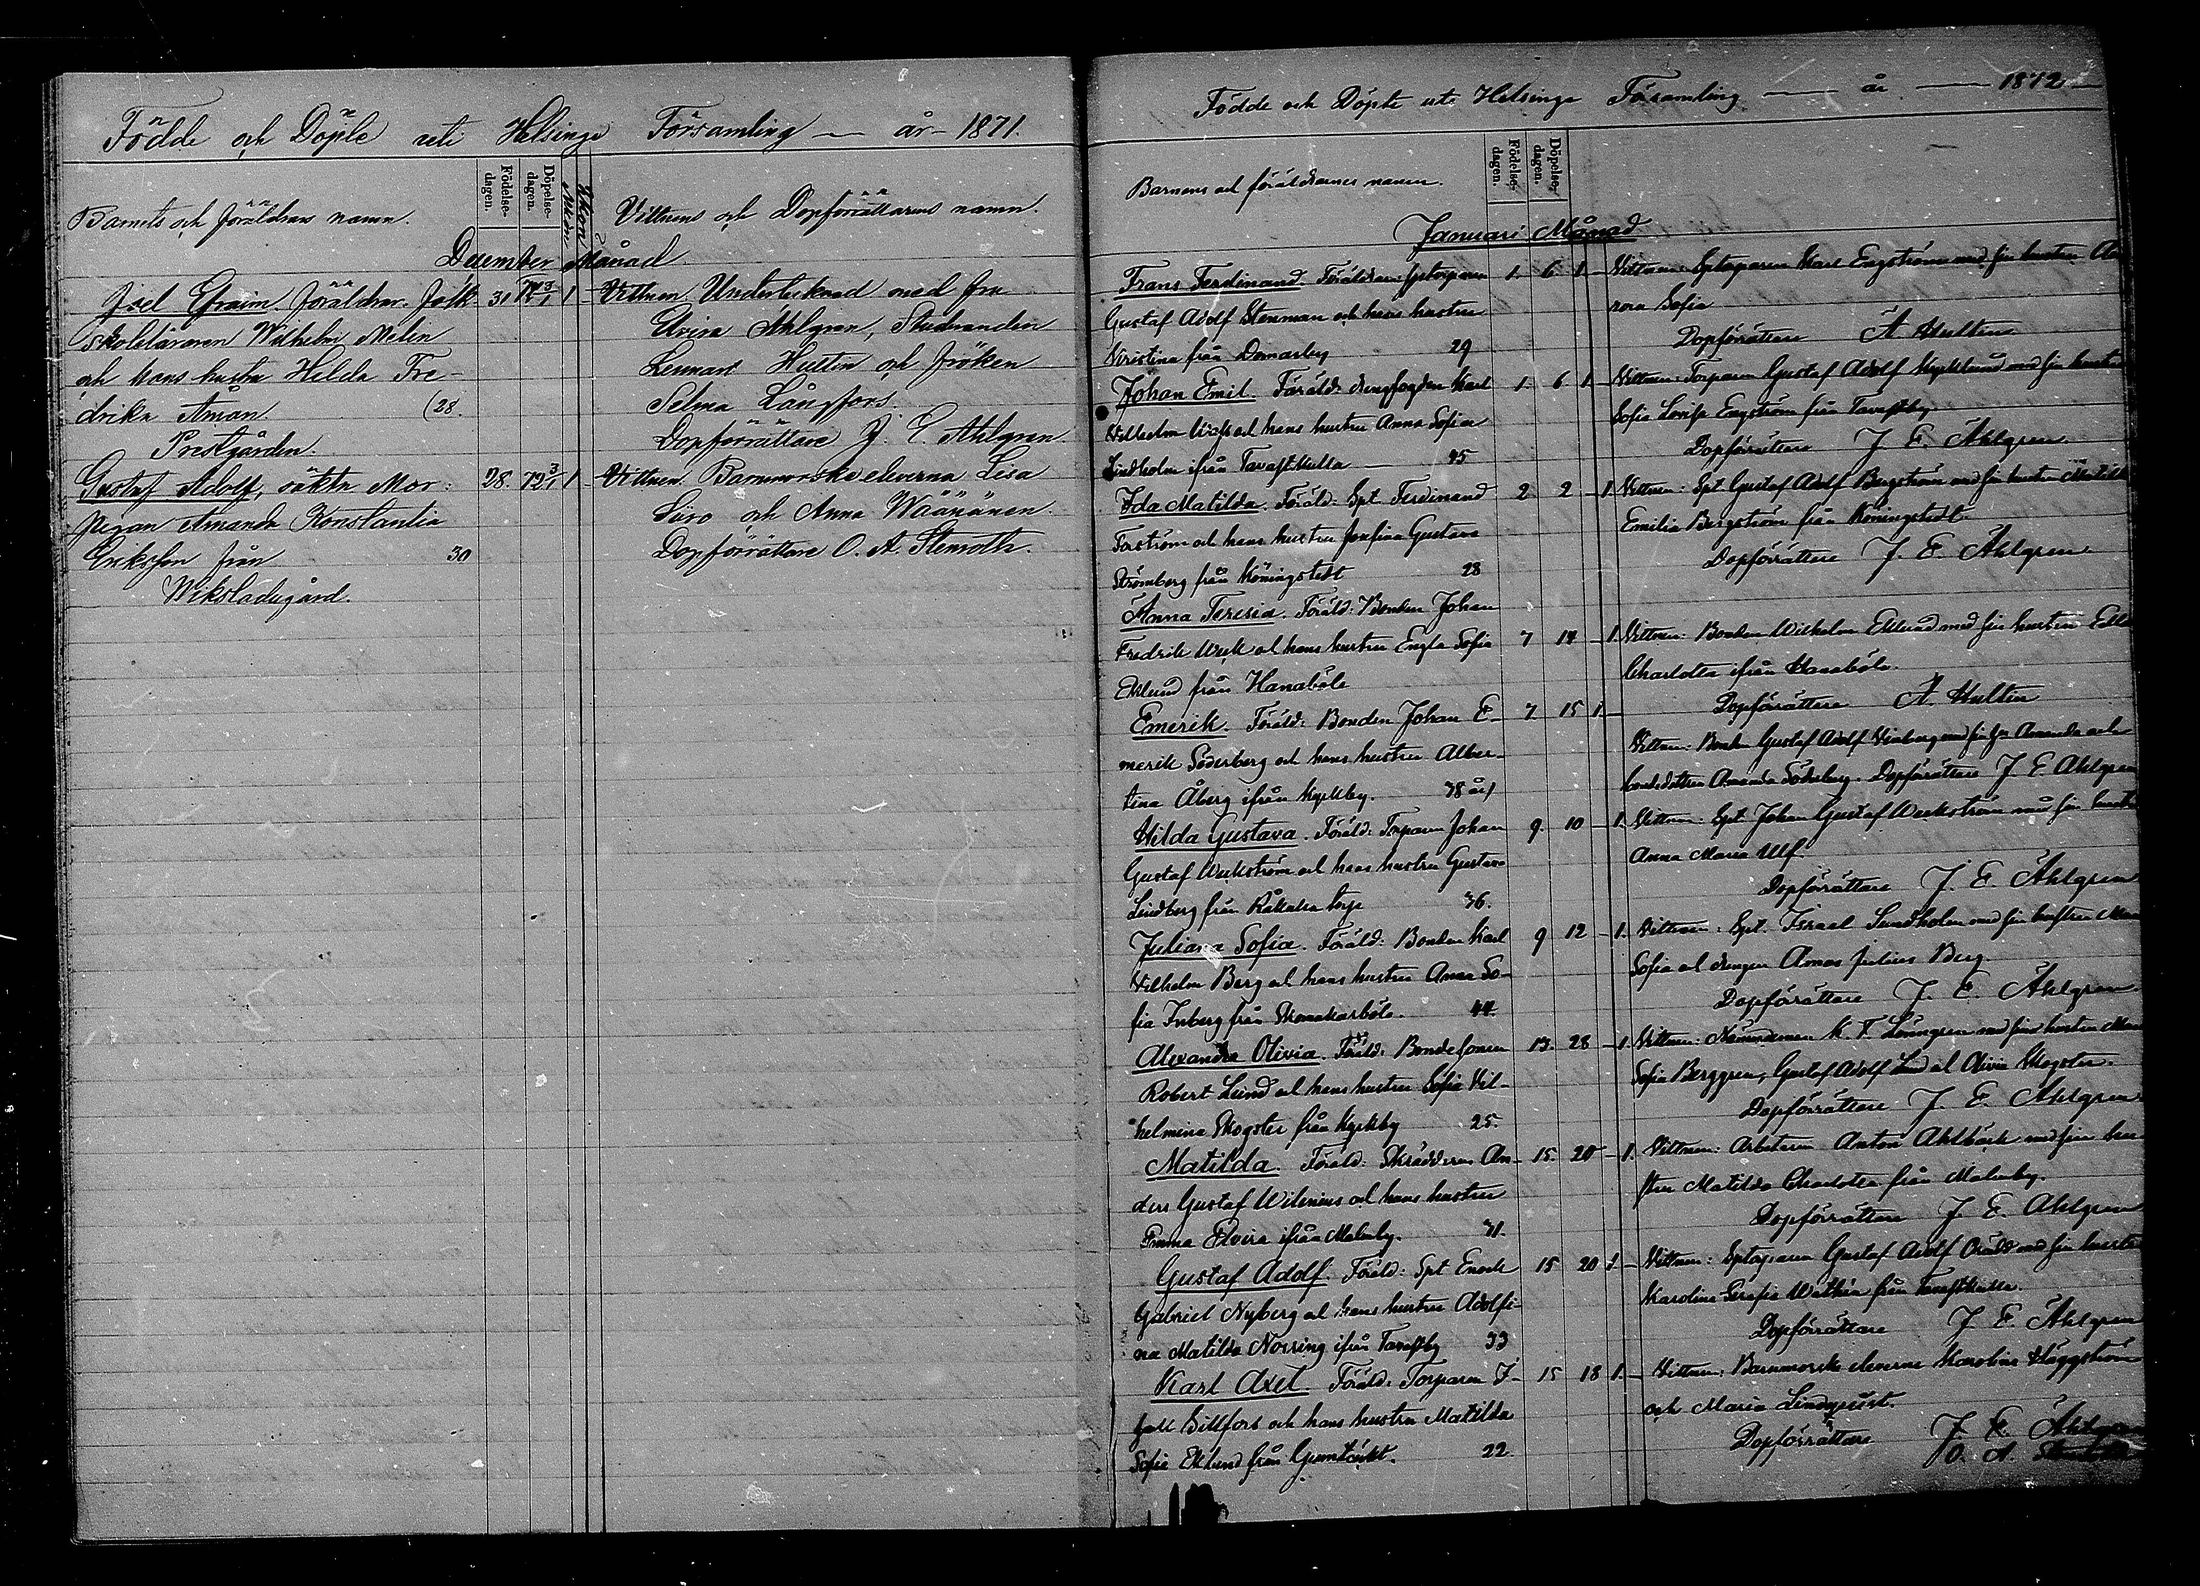 Födde och Döpte uti Helsinge Församling — år — 1871.
Barnets och föräldrars namn.
Födelse-
dagen.
Döpelse-
dagen.
Mkön
Qkön
Vittnens och Dopförrättarens namn.
December Månad
Joel Efraim. Föräldrar: Folk 31 72 3/1 1 —
skoleläraren Wilhelm Melin
och hans hustru Hilda Fre-
drika Åman (28.
Prestgården.
Vittnen Undertecknad med fru
Elvira Ahlgren, Studeranden
Lennart Hulten och Fröken
Selma Långfors.
Dopförrättare J. E. Ahlgren.
Gustaf Adolf, oäkta Mor: 28. 72 3/1 1 —
pigan Amanda Konstantia
Eriksson från 30
Wiksladugård.
Vittnen. Barnmorske eleverna Lisa
Siiro och Anna Wäänänen.
Dopförrättare O. A. Stenroth.
Födde och Döpte uti Helsinge Församling — år — 1872 —
Barnens och föräldrarnes namn.
Födelse-
dagen.
Döpelse-
dagen.
Januari Månad
Frans Ferdinand. Föräldrar: 1. 6. 1. —
Gustaf Adolf Stenman och hans hustru
Kristina från Domarby 29
Vittnen: Sptorparen Karl Engström med sin hustru Au-
rora Sofia
Dopförrättare A Hulten
Johan Emil. Föräld: Karl 1. 6. 1 —
Wilhelm och hans hustru Anna Sofia
Lindholm ifrån Tavastkulla — 45
Vittnen: Torparen Gustaf Adolf med sin hustru
Sofia Lovisa Engström från Tavastby
Dopförrättare J. E. Ahlgren
Ida Matilda. Föräld: Spt Ferdinand 2 2 — 1.
Forström och hans hustru Josefina Gustava
Strömberg från Köningstedt 28
Vittnen: Spt Gustaf Adolf Bergström med sin hustru Matilda
Emilia Bergström från Köningstedt
Dopförrättare J. E. Ahlgren.
Anna Teresia. Föräld: Bonden Johan
Fredrik Weck och hans hustru Engla Sofia 7 14 — 1.
Eklund från Hanaböle
Vittnen: Bonden Wilhelm Eklund med sin hustru
Charlotta ifrån Hanaböle.
Dopförrättare A. Hulten
Emerik. Föräld: Bonden Johan E- 7. 15 1. —
merik Söderberg och hans hustru Alber-
tina Åberg ifrån Kyrkby. 38 år/
Vittnen: Bonden Gustaf Adolf med sin fru Amanda och
bondedottren Amanda Söderberg. Dopförrättare J. E. Ahlgren
Hilda Gustava. Föräld: Torparen Johan 9. 10 — 1.
Gustaf Weckström och hans hustru Gustava
Lindberg från torp 36.
Vittnen: Spt. Johan Gustaf Weckström med sin hustru
Anna Maria Ulf.
Dopförrättare J. E. Ahlgren
Juliana Sofia. Föräld: Bonden Karl 9 12 — 1.
Wilhelm Berg och hans hustru Anna So-
fia från Skomakarböle. 44.
Vittnen: Spt. Israel Sundholm med sin hustru
Sofia och drengen Julius Berg.
Dopförrättare J. E. Ahlgren
Alexandra Olivia. Föräld: Bondesonen 13. 28 — 1.
Robert Lund och hans hustru Sofia Vil-
helmina Skogster från Kyrkby 25.
Vittnen: Nämndeman K. F. Lönngren med sin hustru
Sofia Berggren, Gustaf Adolf Lund och Olivia Skogster.
Dopförrättare J. E. Ahlgren
Matilda. Föräld: Skräddaren An- 15. 20 — 1.
ders Gustaf Wilenius och hans hustru
Emma Elvira ifrån Malmby. 31.
Vittnen: Arbetaren Anton Ahlbäck med sin hu-
stru Matilda Charlotta från Malmby.
Dopförrättare J. E. Ahlgren
Gustaf Adolf. Föräld: Spt Enock 15 20 1. —
Gabriel Nyberg och hans hustru Adolfi-
na Matilda Norring ifrån Tavastby 33
Vittnen: Sptorparen Gustaf Adolf med sin hustru
Karolina Serafia från Tavastkulla.
Dopförrättare J. E. Ahlgren
Karl Axel. Föräld: Torparen I- 15 18 1. —
sak och hans hustru Matilda
Sofia Eklund från Gumtäkt. 22.
Vittnen: Barnmorske eleverna Karolina Häggström
och Maria Lindqvist.
Dopförrättare J. E. Ahlgren
O. A.